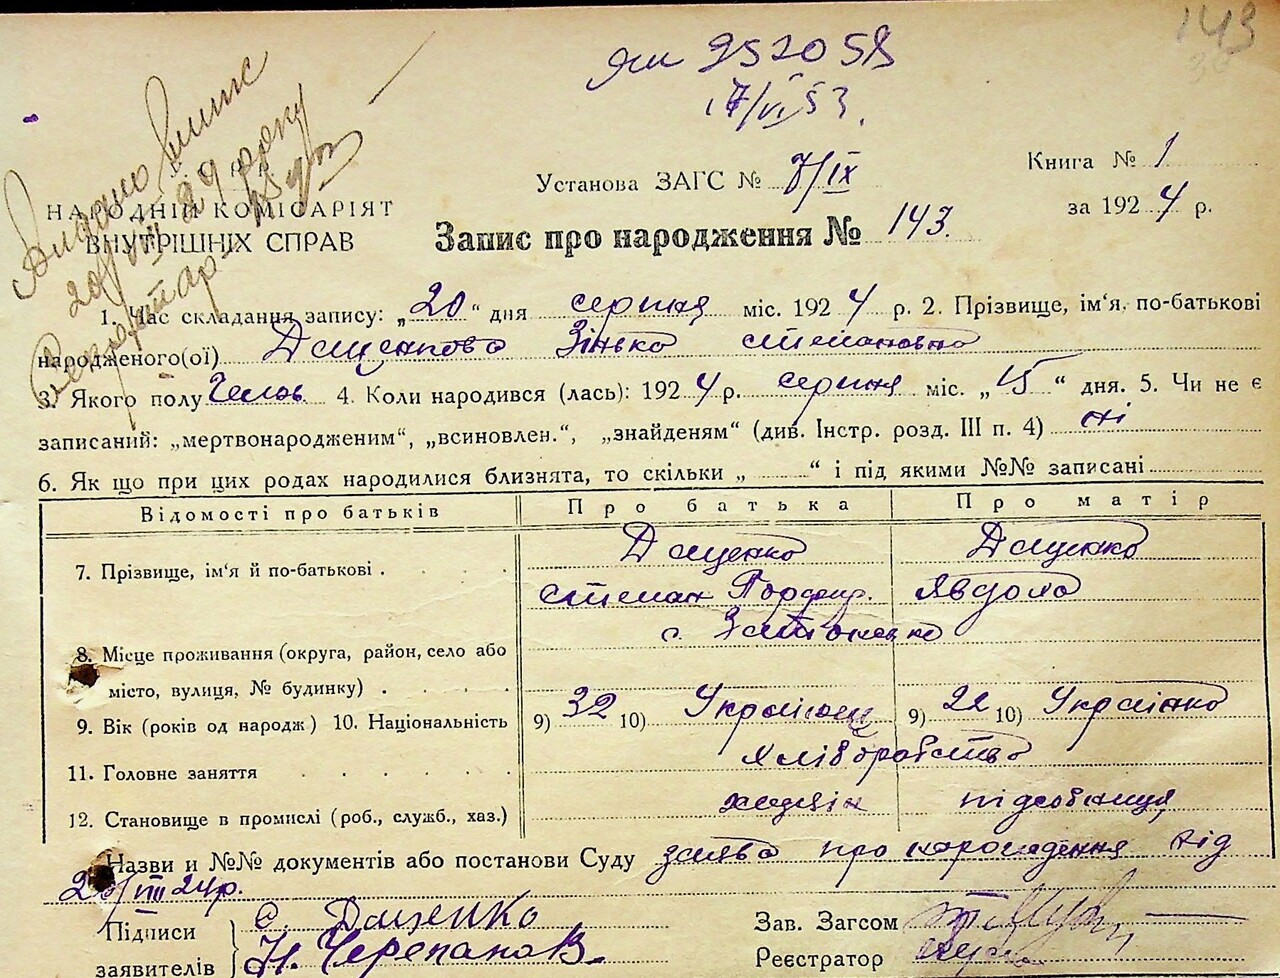 143
952058
17/VI 53.
Видано
НАРОДНІЙ КОМІСАРІЯТ
ВНУТРІШНІХ СПРАВ
Установа ЗАГС № 7/IX
Книга № 1
за 1924 р.
Запис про народження № 143.
1. Час складання запису: „20“ дня серпня міс. 1924 р. 2. Прізвище, ім‘я, по-батькові
народженого(ої) Даценкова Зінька Степановна
3. Якого полу 4. Коли народився (лась): 1924 р. серпня міс. „15“ дня. 5. Чи не є
записаний: „мертвонародженим“, „всиновлен.“, „знайденям“ (див. Інстр. розд. III п. 4) ні
6. Як що при цих родах народилися близнята, то скільки „ “ і під якими №№ записані
Відомості про батьків Про батька Про матір
7. Прізвище, ім‘я й по-батькові . Даценко Даценко
Степан Порфир. Явдоха
с.
8. Місце проживання (округа, район, село або
місто, вулиця, № будинку) .
9. Вік (років од народж) 10. Національність 9) 32 10) Українец 9) 22 10) Українка
11. Головне заняття хліборобство
12. Становище в промислі (роб., служб., хаз.) хазяїн підсобниця
Назви и №№ документів або постанови Суду заява про народження від
20/VIII 24 р.
Підписи заявителів С. Даценко
Н. Черепанов.
Зав. Загсом
Реєстратор